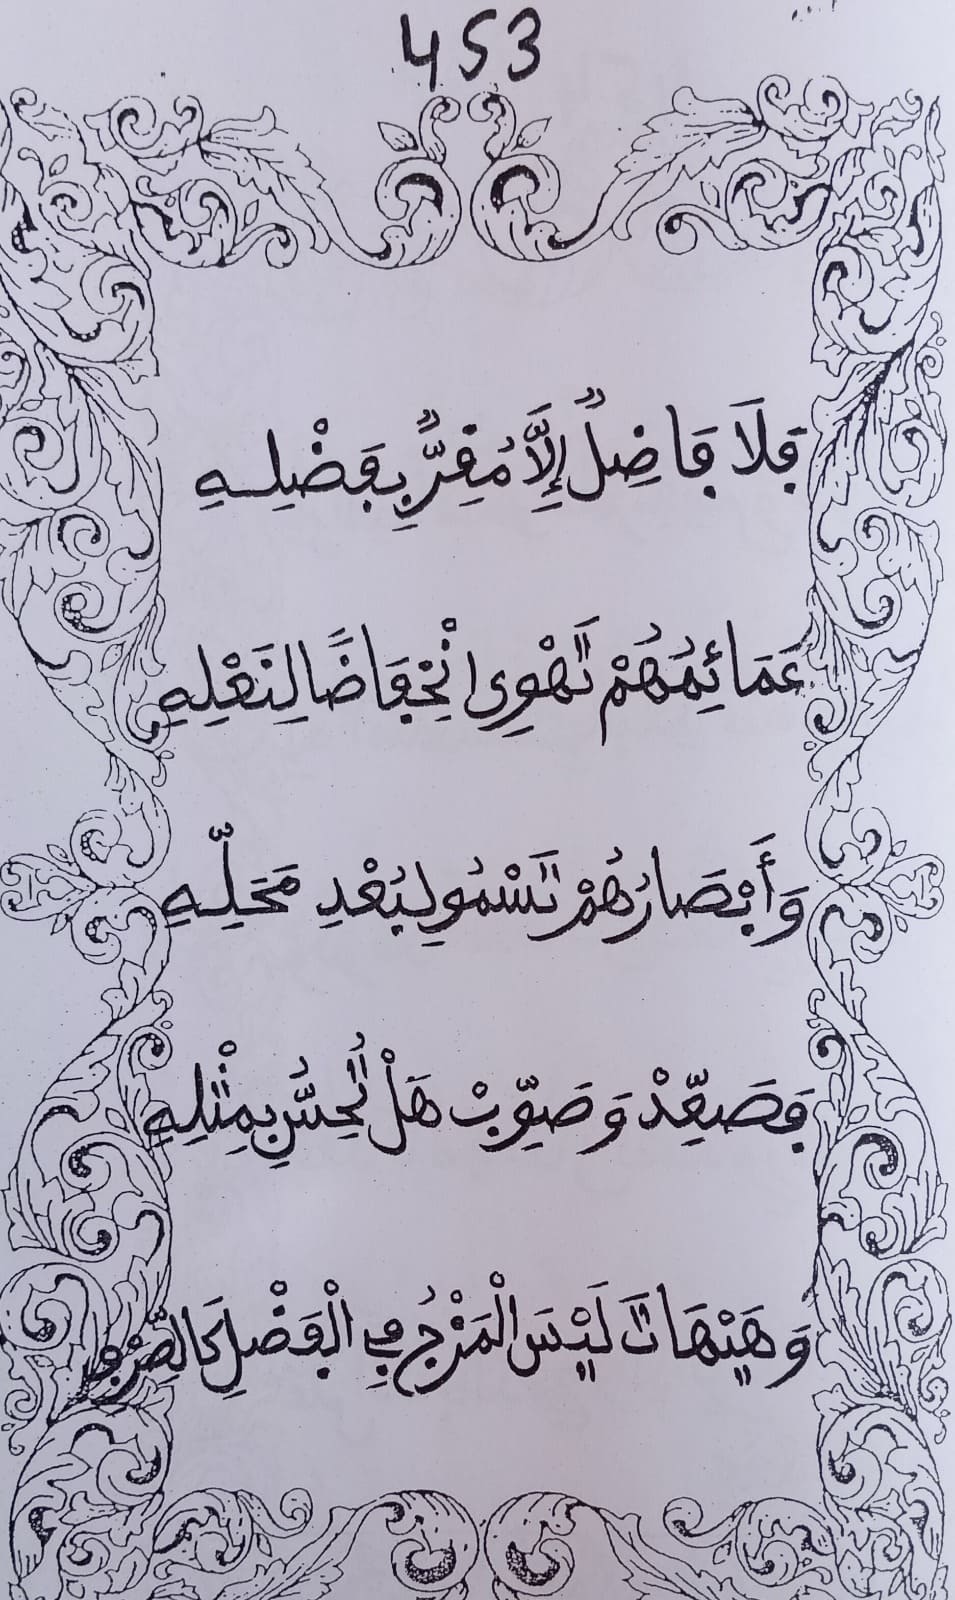 453
فَلَا فَاضِلٌ إِلَّا مُقِرٌّ بِفَضْلِهِ
عَمَائِمُهُمْ تَهْوِي انْخِفَاضًا لِنَعْلِهِ
وَأَبْصَارُهُمْ تَسْمُو لِبُعْدِ مَحَلِّهِ
فَصَعِّدْ وَصَوِّبْ هَلْ تُحِسُّ بِمِثْلِهِ
وَهَيْهَاتَ لَيْسَ الْمَزْجُ فِي الْفَضْلِ كَالصِّرْفِ